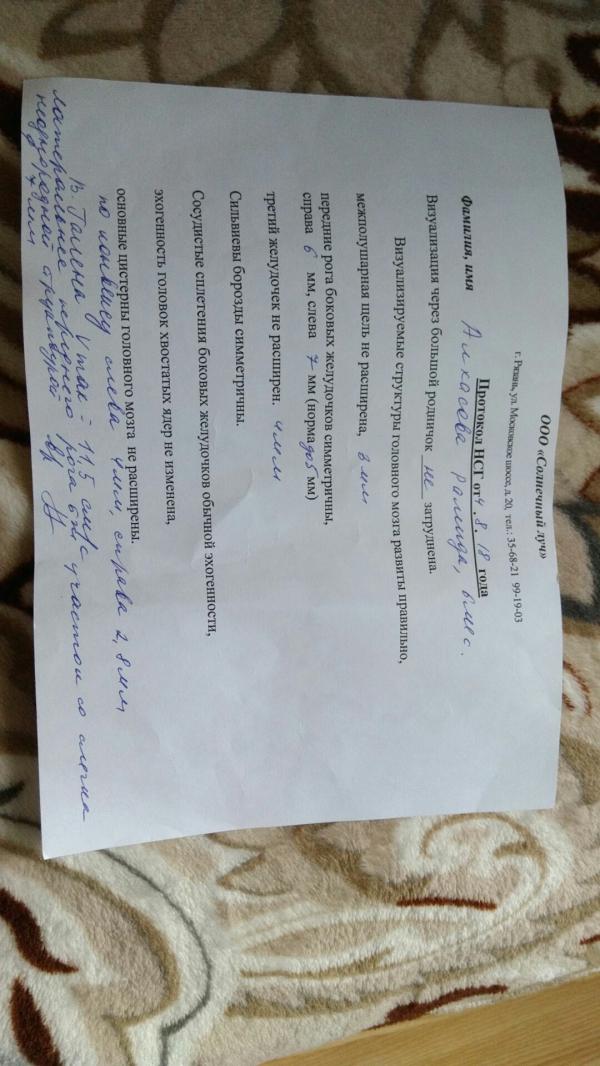 ООО «Солнечный луч»
г. Рязань, ул. Московское шоссе, д. 20, тел.: 35-68-21 99-19-03
Протокол НСГ от 4. 8. 18 года
Фамилия, имя Алхасова 6 мес.
Визуализация через большой родничок не затруднена.
Визуализируемые структуры головного мозга развиты правильно,
межполушарная щель не расширена, 3 мм
передние рога боковых желудочков симметричны,
справа 6 мм, слева 7 мм (норма до 5 мм)
третий желудочек не расширен. 4 мм
Сильвиевы борозды симметричны.
Сосудистые сплетения боковых желудочков обычной эхогенности,
эхогенность головок хвостатых ядер не изменена,
основные цистерны головного мозга не расширены.
по слева 4 мм, справа 2,8 мм
В. Галена V max - 11,5 см/с
латеральнее переднего рога участок со слегка
неоднородной структурой
7 мм